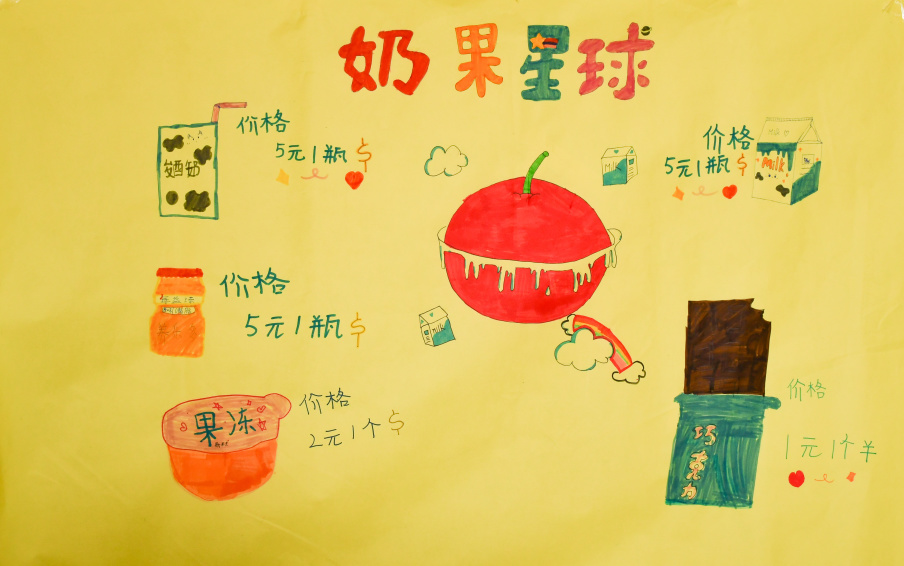 奶果星球
价格
5元1瓶$
酸奶
价格
5元1瓶$
Milk
Milk
价格
5元1瓶$
Milk
果冻
价格
2元1个$
价格
1元1个
巧克力